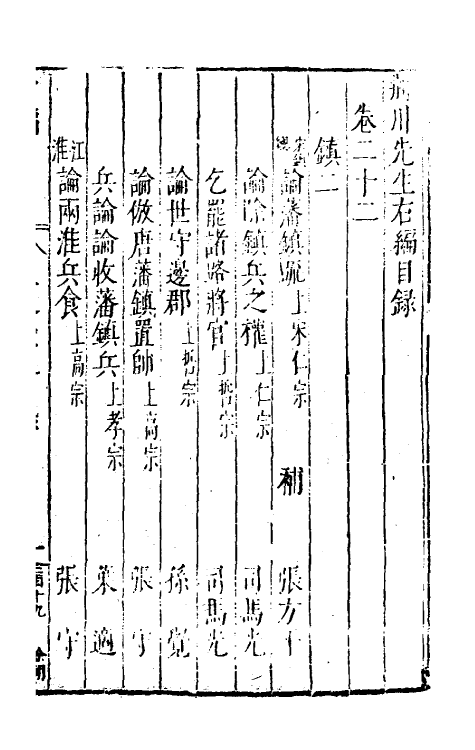 荊川先生右編目錄
卷二十二
鎮二
論藩鎮 上宋仁宗 補 張方平
論除鎮兵之權 上仁宗 司馬光
乞罷諸路將官 上哲宗 司馬光
論世守邊郡 上哲宗 孫覺
論倣唐藩鎮置帥 上高宗 張守
兵論論收藩鎮兵 上孝宗 葉適
江淮 論兩淮兵食 上高宗 張守